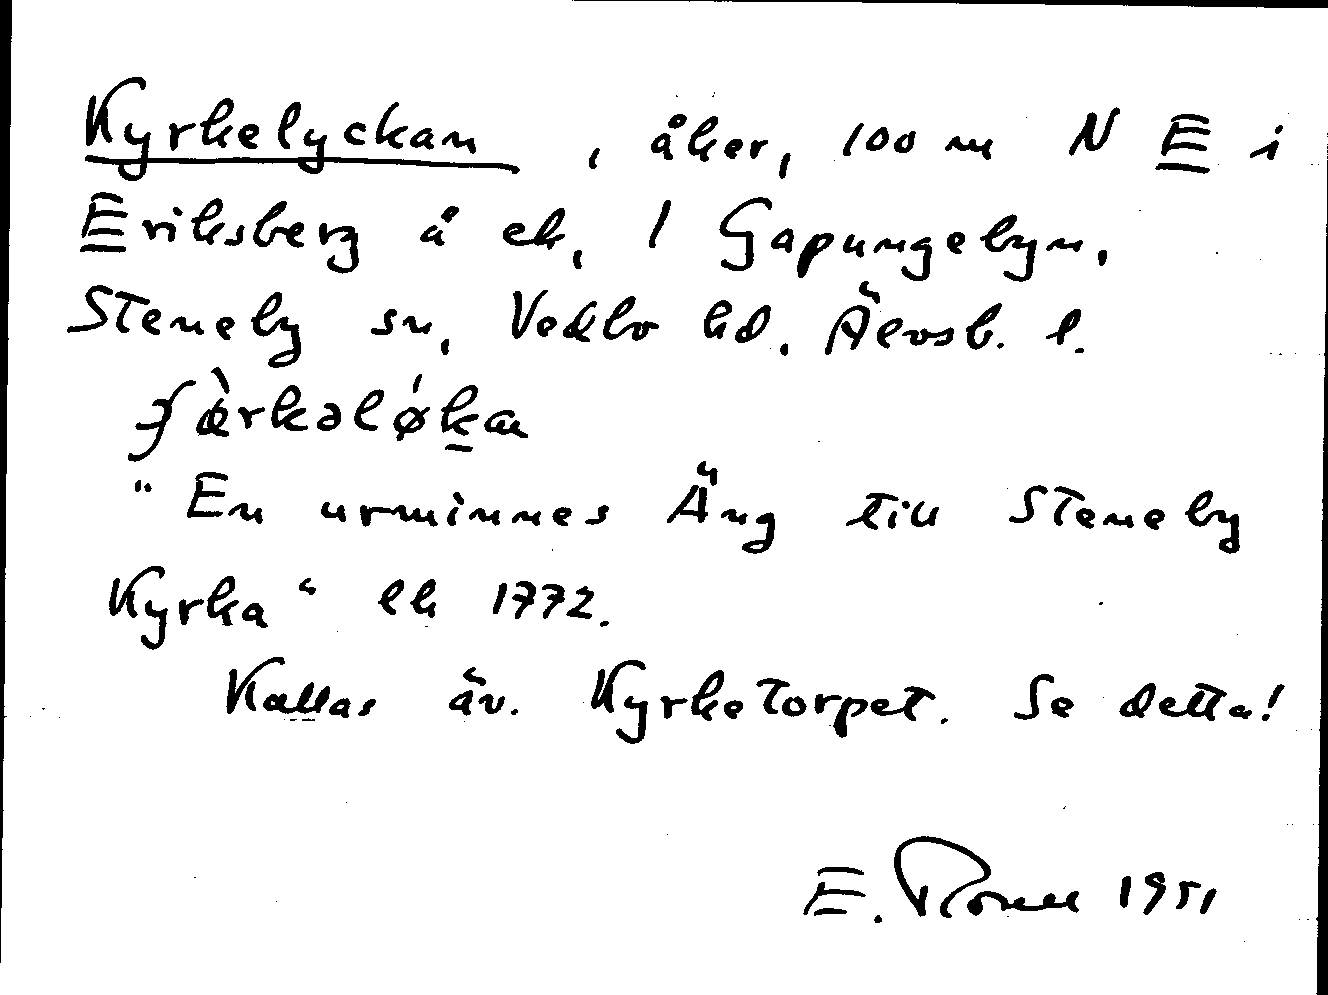 Kyrkelyckan, åker, 100 m N E i
Eriksberg å ek, 1 Gapungebyn,
Steneby sn, Vedbo hd. Älvsb. l.
"En urminnes Äng till Steneby
Kyrka" lk 1772.
Kallas äv. Kyrketorpet. Se detta!
E. 1951